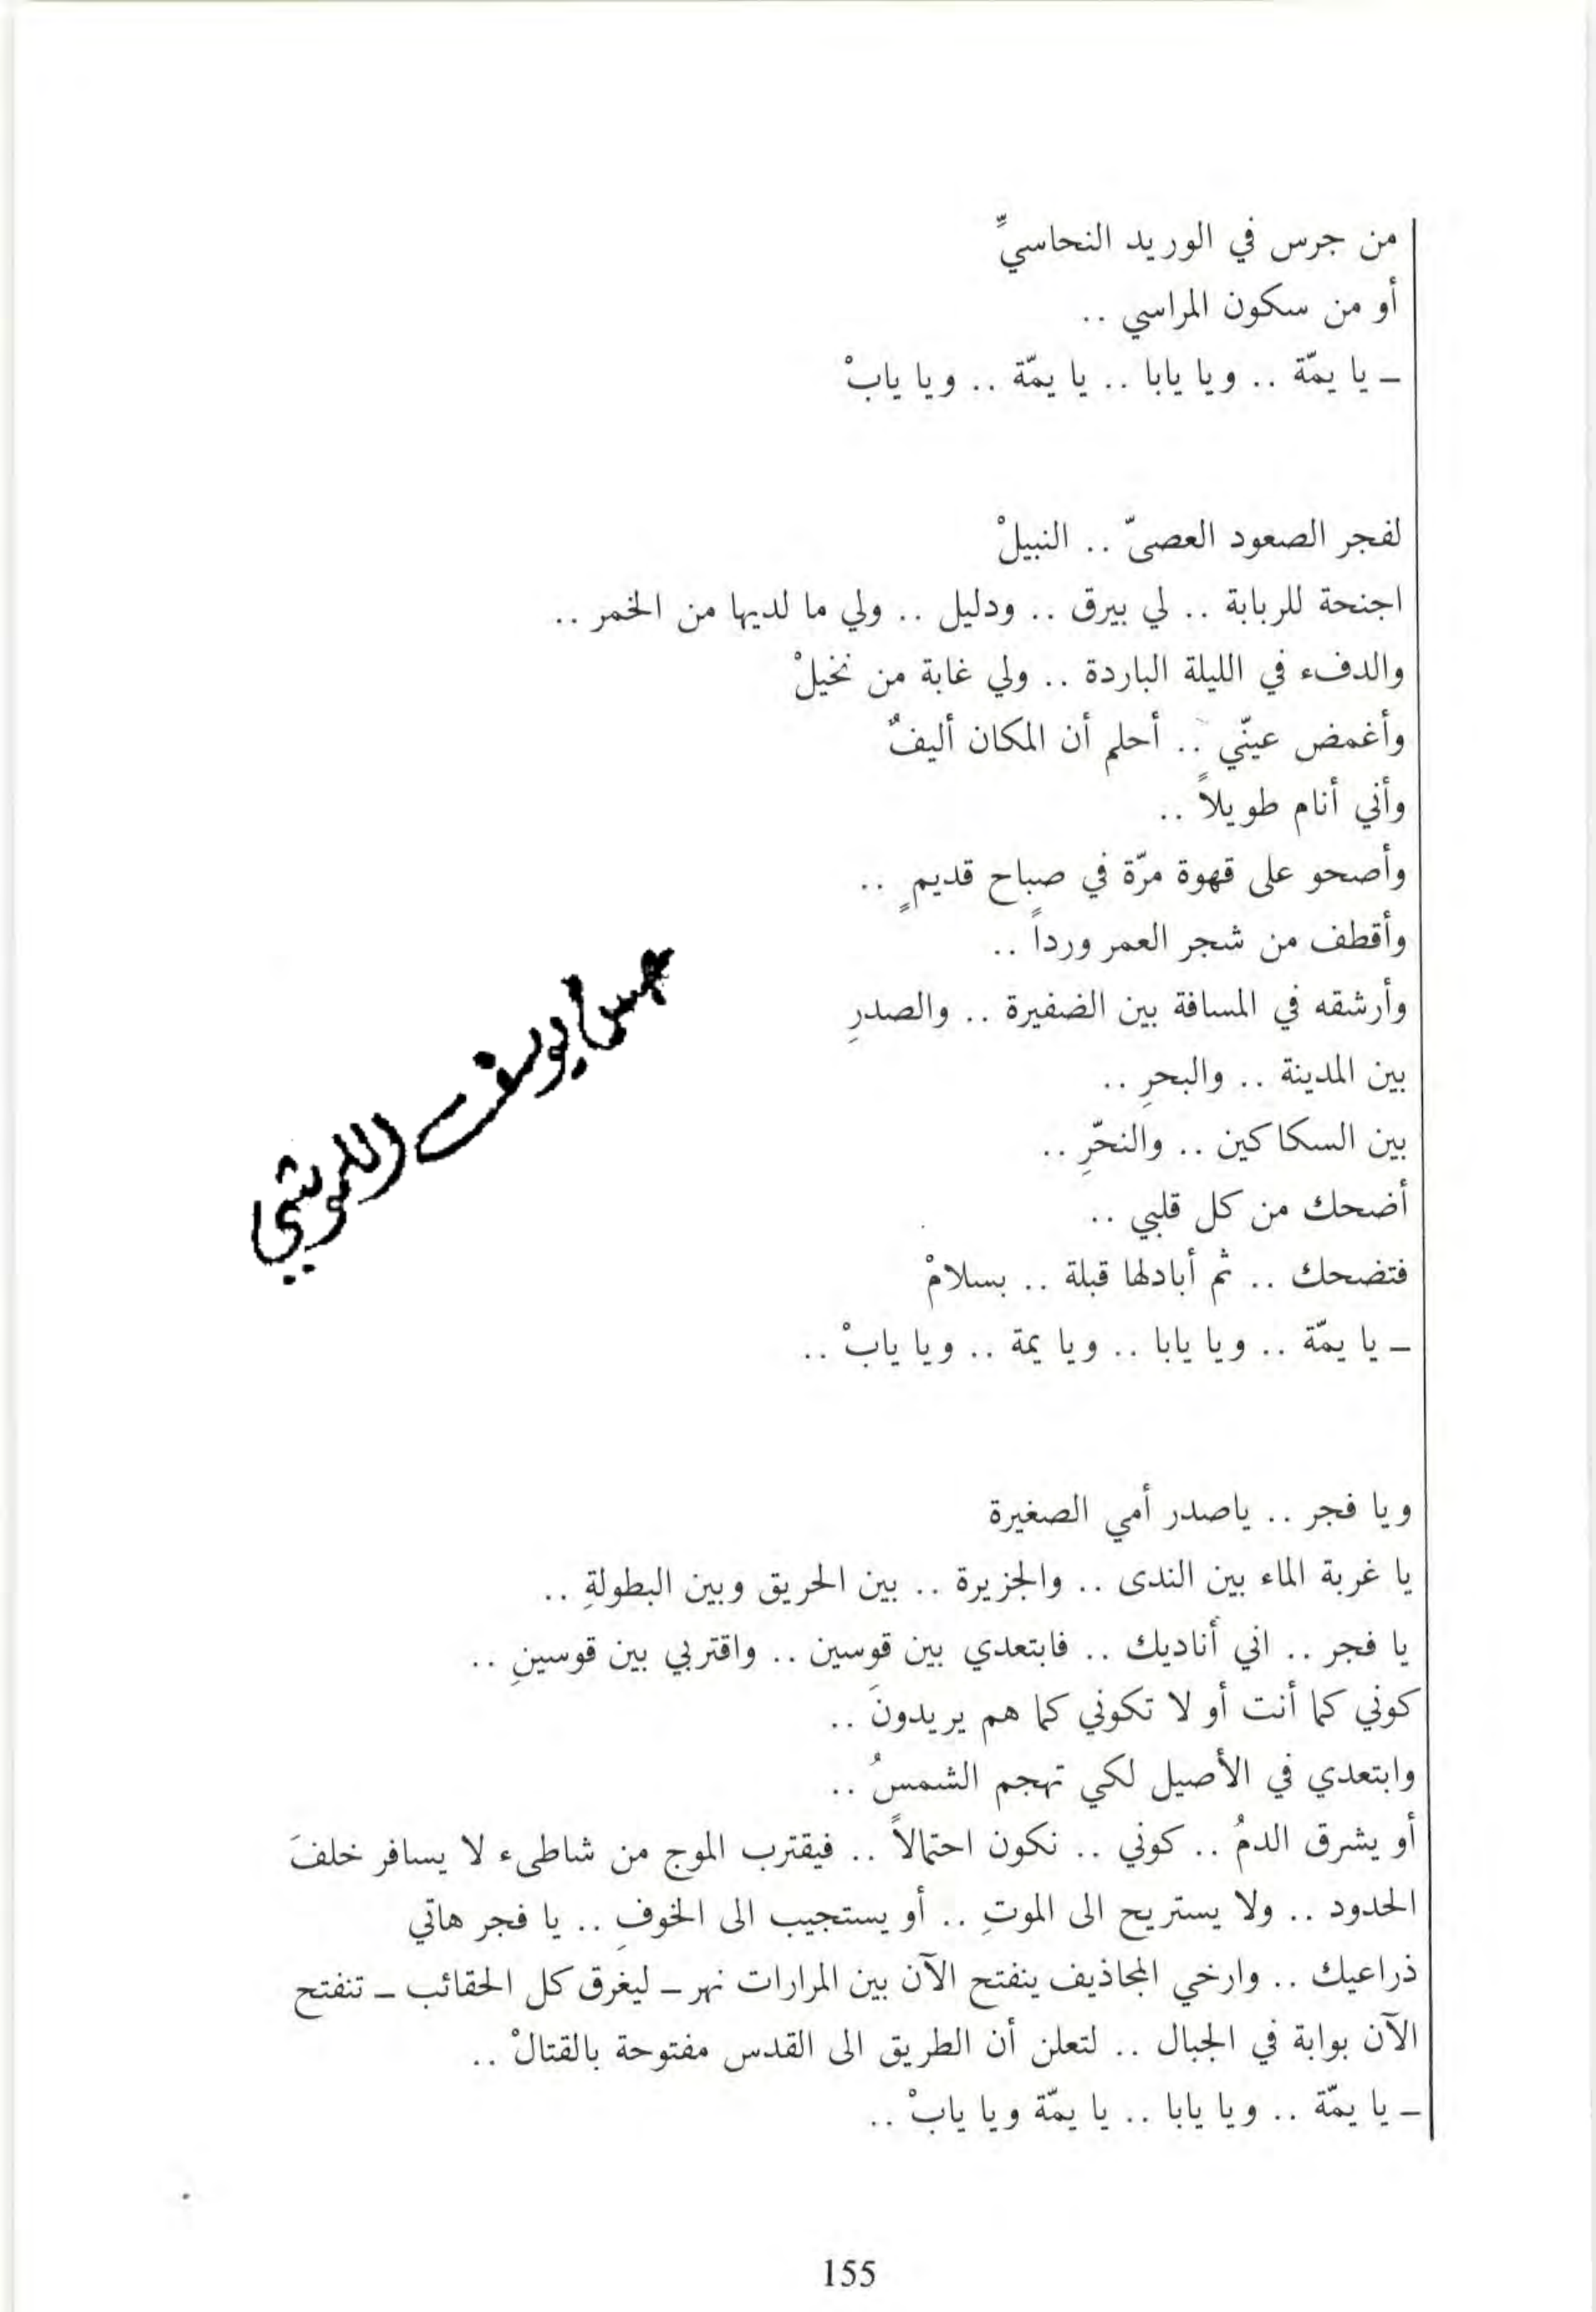 من جرس في الوريد النحاسيِّ
أو من سكون المراسي ..
ـ يا يمّة .. ويا يابا .. يا يمّة .. ويا يابْ
لفجر الصعود العصىّ .. النبيلْ
اجنحة للربابة .. لي بيرق .. ودليل .. ولي ما لديها من الخمر ..
والدفء في الليلة الباردة .. ولي غابة من نخيلْ
وأغمض عينّي .. أحلم أن المكان أليفٌ
وأني أنام طويلاً ..
وأصحو على قهوة مرّة في صباح قديمٍ ..
وأقطف من شجر العمر ورداً ..
وأرشقه في المسافة بين الضفيرة .. والصدرِ
بين المدينة .. والبحرِ ..
بين السكاكين .. والنحّرِ ..
أضحك من كل قلبي ..
فتضحك .. ثم أبادلها قبلة .. بسلامْ
ـ يا يمّة .. ويا يابا .. ويا يمة .. ويا يابْ ..
يوسف
ويا فجر .. ياصدر أمي الصغيرة
يا غربة الماء بين الندى .. والجزيرة .. بين الحريق وبين البطولةِ ..
يا فجر .. اني أناديك .. فابتعدي بين قوسين .. واقتربي بين قوسينِ ..
كوني كما أنت أو لا تكوني كما هم يريدونَ ..
وابتعدي في الأصيل لكي تهجم الشمسُ ..
أو يشرق الدمُ .. كوني .. نكون احتمالاً .. فيقترب الموج من شاطىء لا يسافر خلفَ
الحدود .. ولا يستريح الى الموتِ .. أو يستجيب الى الخوفِ .. يا فجر هاتي
ذراعيك .. وارخي المجاذيف ينفتح الآن بين المرارات نهر ـ ليغرق كل الحقائب ـ تنفتح
الآن بوابة في الجبال .. لتعلن أن الطريق الى القدس مفتوحة بالقتالْ ..
ـ يا يمّة .. ويا يابا .. يا يمّة ويا يابْ ..
155